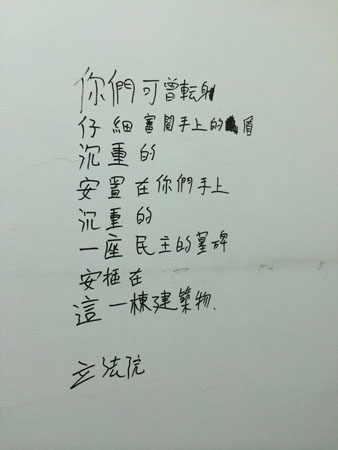 你們可曾転身
仔細審閱手上的盾
沉重的
安置在你們手上
沉重的
一座民主的墓碑
安插在
這一棟建築物.
立法院